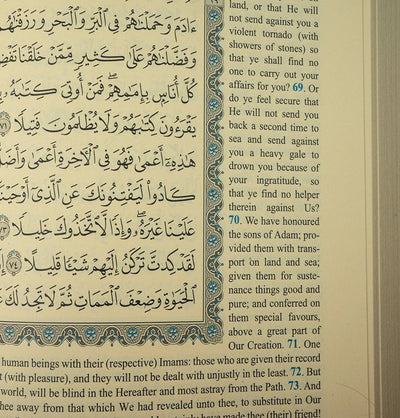 ءَادَمَ وَحَمَلْنَٰهُمْ فِى ٱلْبَرِّ وَٱلْبَحْرِ وَرَزَقْنَٰهُم
وَفَضَّلْنَٰهُمْ عَلَىٰ كَثِيرٍ مِّمَّنْ خَلَقْنَا
كُلَّ أُنَاسٍۭ بِإِمَٰمِهِمْ ۖ فَمَنْ أُوتِىَ كِتَٰبَهُۥ
يَقْرَءُونَ كِتَٰبَهُمْ وَلَا يُظْلَمُونَ فَتِيلًا ٧١
هَٰذِهِۦٓ أَعْمَىٰ فَهُوَ فِى ٱلْءَاخِرَةِ أَعْمَىٰ
كَادُوا۟ لَيَفْتِنُونَكَ عَنِ ٱلَّذِىٓ
عَلَيْنَا غَيْرَهُۥ ۖ وَإِذًا لَّٱتَّخَذُوكَ خَلِيلًا ٧٣
لَقَدْ كِدتَّ تَرْكَنُ إِلَيْهِمْ شَيْـًٔا قَلِيلًا ٧٤
ٱلْحَيَوٰةِ وَضِعْفَ ٱلْمَمَاتِ ثُمَّ لَا تَجِدُ لَكَ
land, or that He will
not send against you a
violent tornado (with
showers of stones) so
that ye shall find no
one to carry out your
affairs for you? 69. Or
do ye feel secure that
He will not send you
back a second time to
sea and send against
you a heavy gale to
drown you because of
your ingratitude, so
that ye find no helper
therein against Us?
70. We have honoured
the sons of Adam; pro-
vided them with trans-
port on land and sea;
given them for suste-
nance things good and
pure; and conferred on
them special favours,
above a great part of
Our Creation. 71. One
human beings with their (respective) Imams: those who are given their record
(with pleasure), and they will not be dealt with unjustly in the least. 72. But
world, will be blind in the Hereafter and most astray from the Path. 73. And
thee away from that which We had revealed unto thee, to substitute in Our
made thee (their) friend!